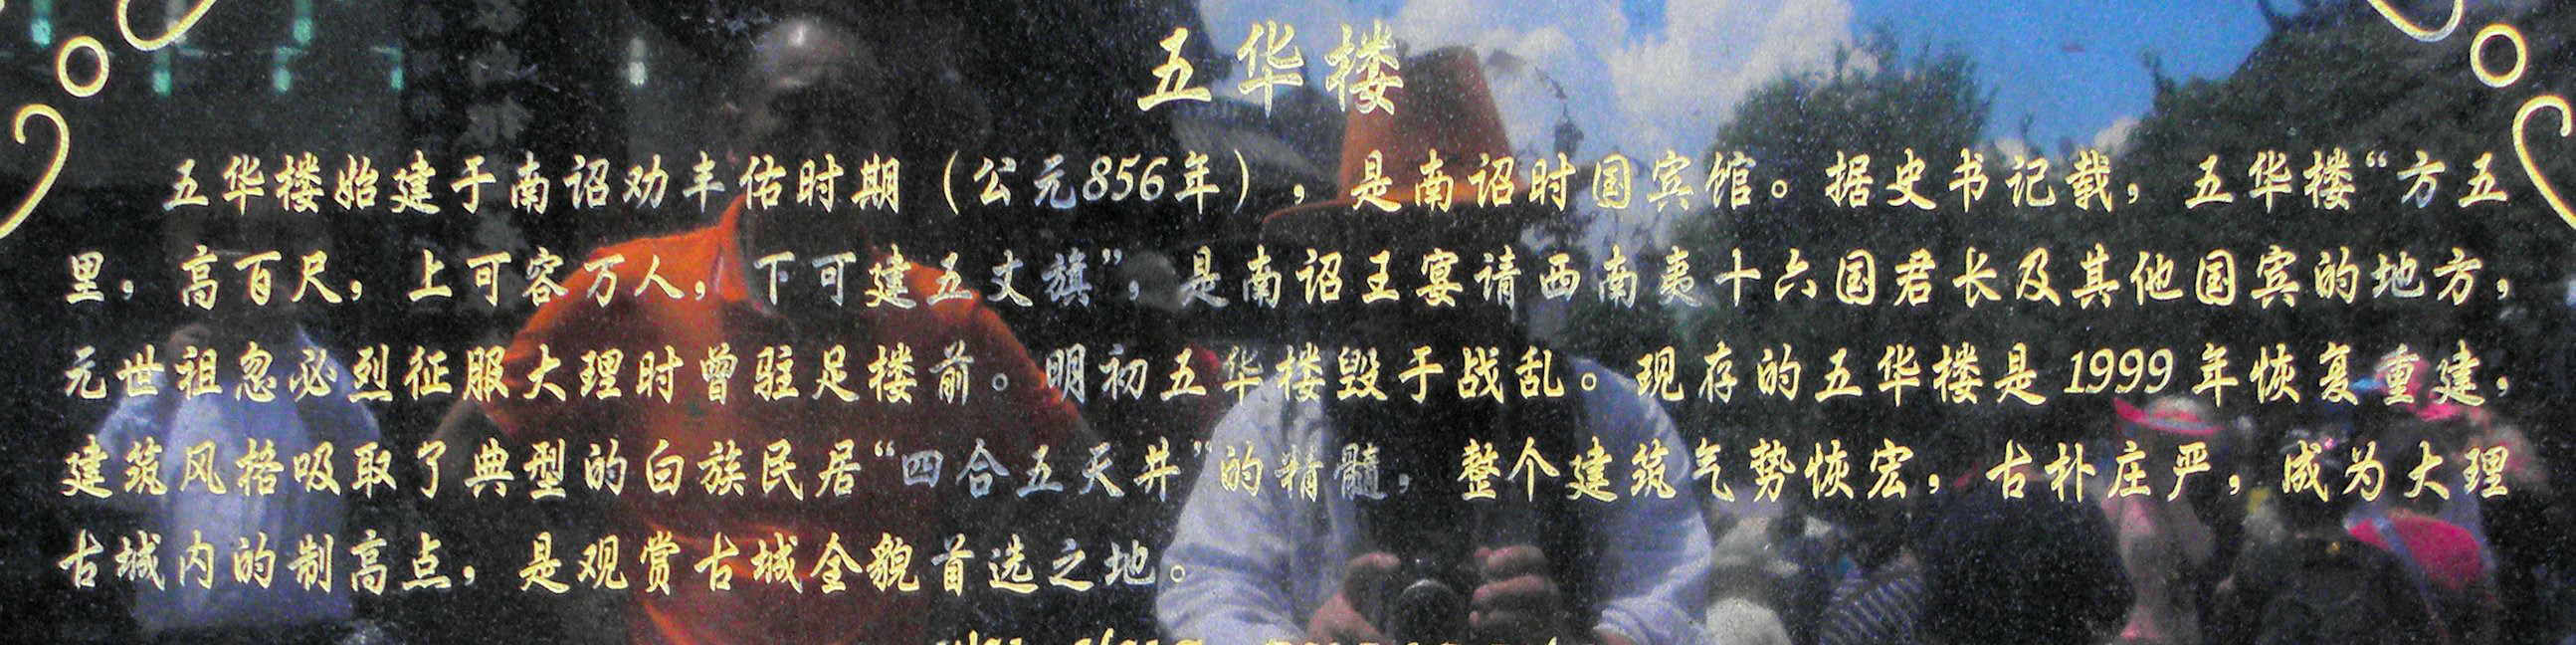 五华楼
五华楼始建于南诏劝丰佑时期（公元856年），是南诏时国宾馆。据史书记载，五华楼“方五
里，高百尺，上可容万人，下可建五丈旗”，是南诏王宴请西南夷十六国君长及其他国宾的地方，
元世祖忽必烈征服大理时曾驻足楼前。明初五华楼毁于战乱。现存的五华楼是1999年恢复重建，
建筑风格吸取了典型的白族民居“四合五天井”的精髓，整个建筑气势恢宏，古朴庄严，成为大理
古城内的制高点，是观赏古城全貌首选之地。